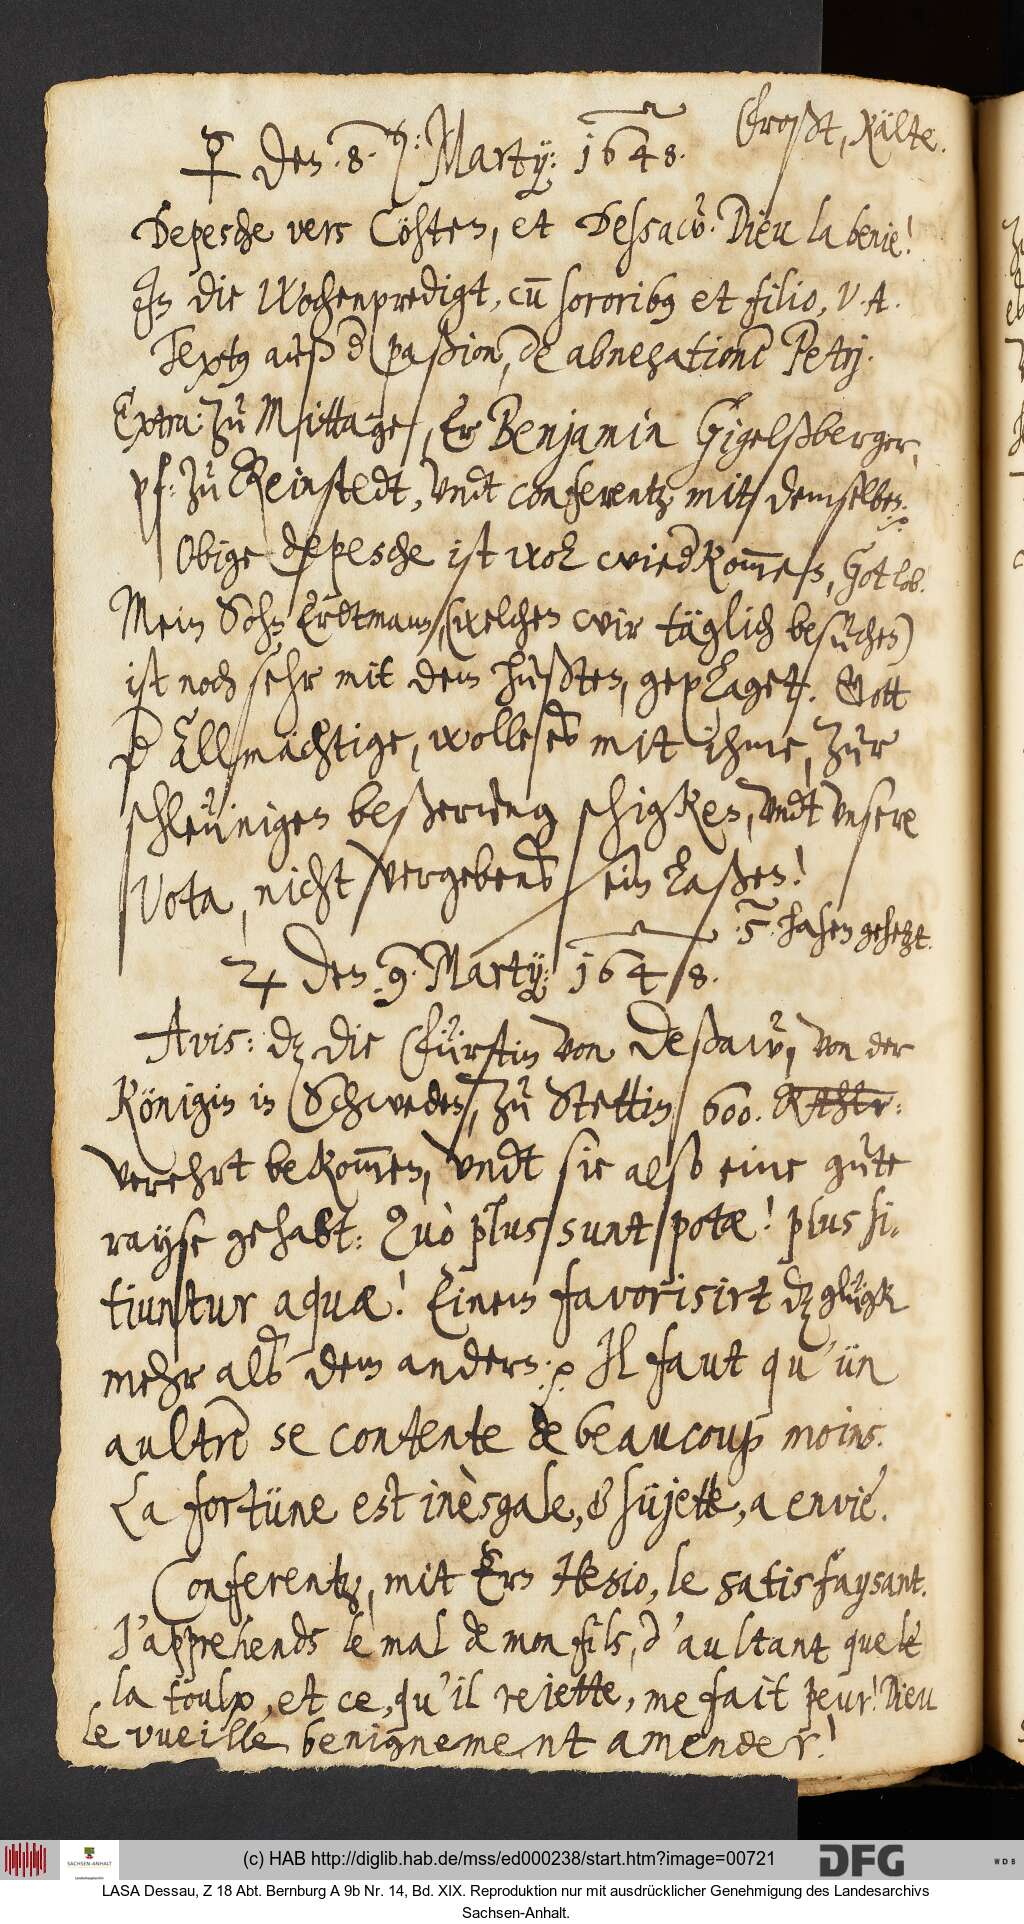 ☿ den .8. Martij: 1648. Frost, Kälte.
Depesche vers Cöhten, et Dessaw̃. Dieu la benie!
In die Wochenpredigt, cū sororibus et filio, V. A.
Textus auß d paßion, de abnegatione Petrj.
Extra: zu Mittage, Er Benjamin Gigelßberger,
pf: zu Reinstedt, undt conferentz mit demselben.
Obige depesche ist wol wiedkom̄en, Got lob.
Mein Sohn Erdtmann, (welchen wir täglich besuchen)
ist noch sehr mit dem hußten, geplaget. Gott
d Allmächtige, wolle es mit ihme, zur
schleunigen beßerung schigken, undt unsere
Vota, nicht vergebens sein laßen!
.5. hasen gehetzt.
♃ den .9. Martij: 1648.
Avis: dz die Fürstin von Deßaw, von der
Königin in Schweden, zu Stettin 600. Rthlr:
verehrt bekom̄en, undt sie also eine gute
rayse gehabt: Quò plus sunt potæ! plus si-
tiuntur aquæ! Einem favorisirt dz glügk
mehr als dem andern. Il faut qu'ün
aultre se contente de beaucoup moins.
La fortüne est inèsgale, & süjette, a envie.
Conferentz, mit Ern Hesio, le satisfaysant.
J'apprehends le mal de mon fils, d'aultant que le
la toulx, et ce, qu'il rejette, me fait peur! Dieu
le vueille benignement amender!
(c) HAB http://diglib.hab.de/mss/ed000238/start.htm?image=00721
SACHSEN-ANHALT
DFG
WDB
LASA Dessau, Z 18 Abt. Bernburg A 9b Nr. 14, Bd. XIX. Reproduktion nur mit ausdrücklicher Genehmigung des Landesarchivs
Sachsen-Anhalt.